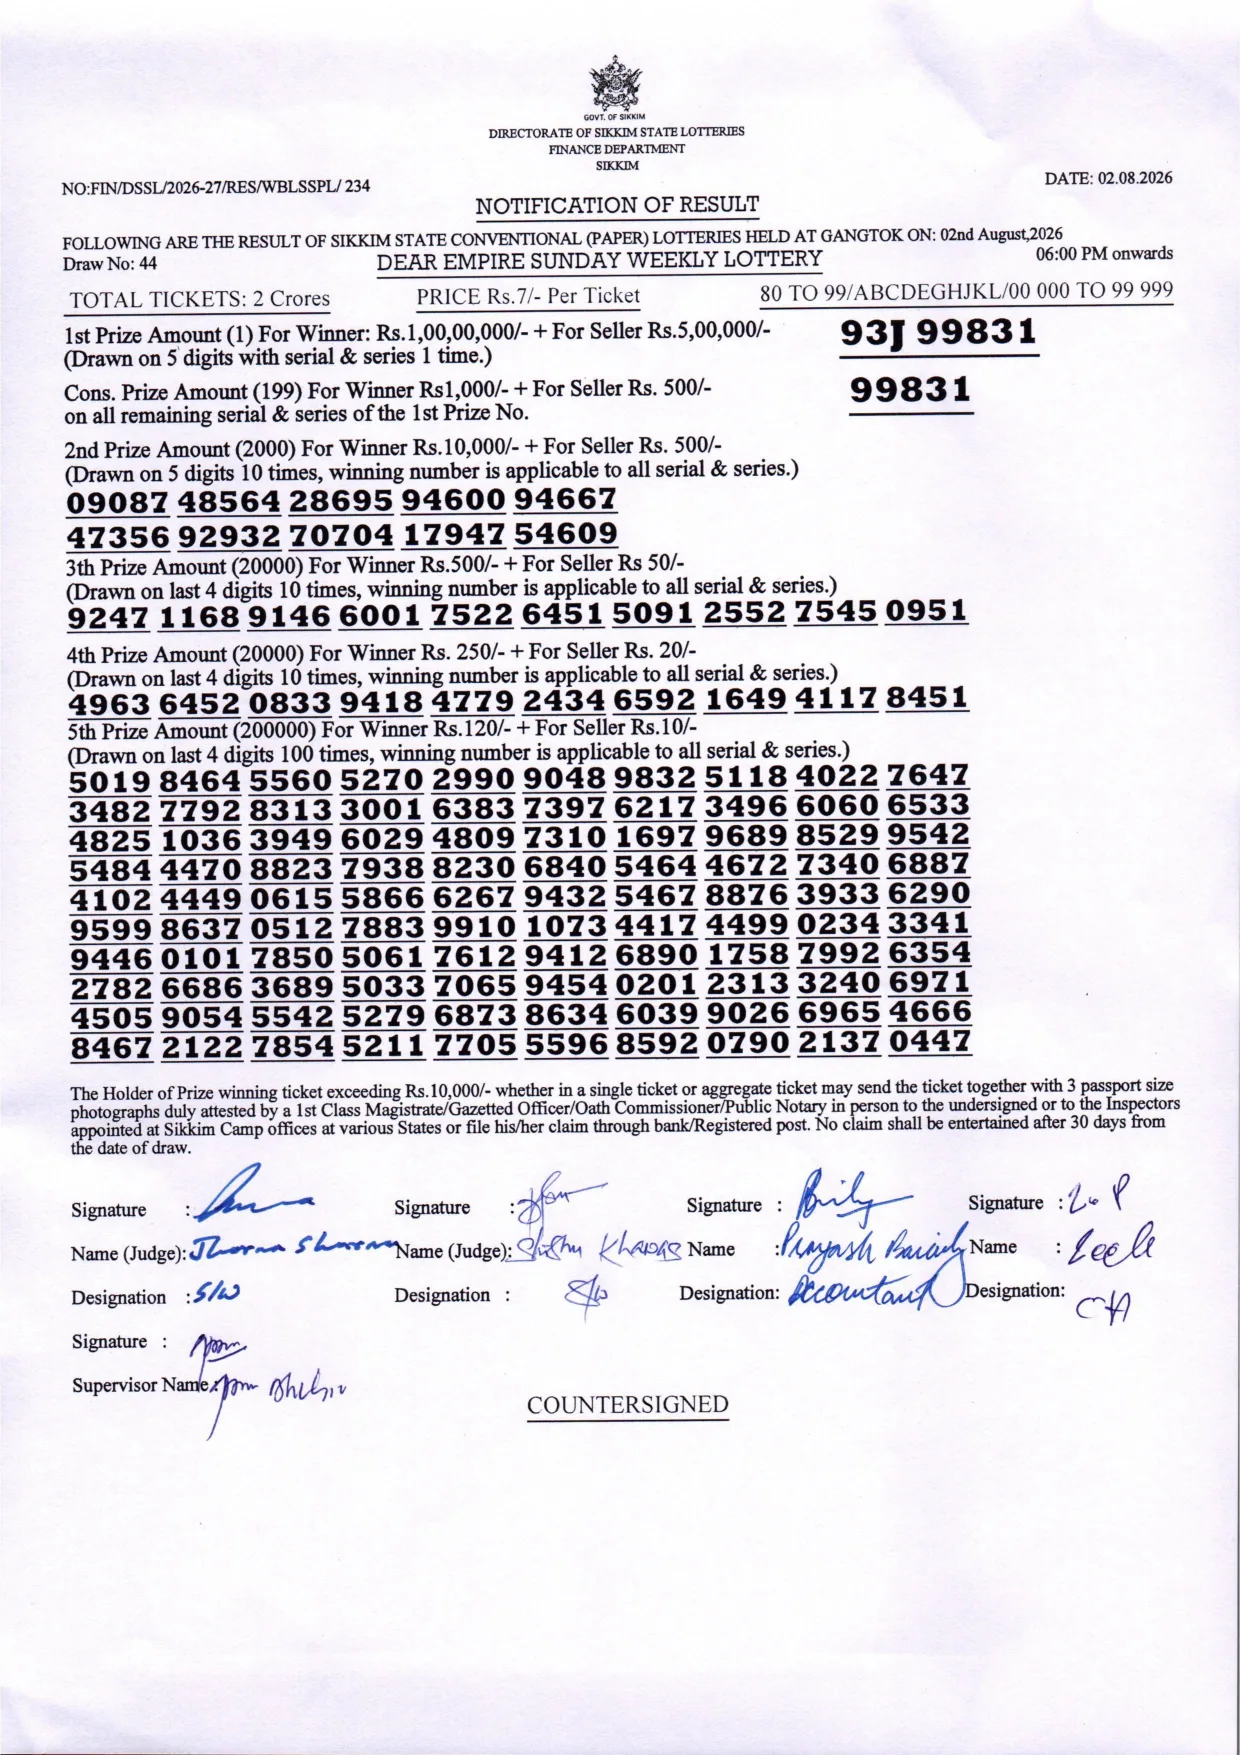 GOVT. OF SIKKIM
DIRECTORATE OF SIKKIM STATE LOTTERIES
FINANCE DEPARTMENT
SIKKIM
NO:FIN/DSSL/2026-27/RES/WBLSSPL/ 234
DATE: 02.08.2026
NOTIFICATION OF RESULT
FOLLOWING ARE THE RESULT OF SIKKIM STATE CONVENTIONAL (PAPER) LOTTERIES HELD AT GANGTOK ON: 02nd August,2026
Draw No: 44 DEAR EMPIRE SUNDAY WEEKLY LOTTERY 06:00 PM onwards
TOTAL TICKETS: 2 Crores PRICE Rs.7/- Per Ticket 80 TO 99/ABCDEGHJKL/00 000 TO 99 999
1st Prize Amount (1) For Winner: Rs.1,00,00,000/- + For Seller Rs.5,00,000/- 93J 99831
(Drawn on 5 digits with serial & series 1 time.)
Cons. Prize Amount (199) For Winner Rs1,000/- + For Seller Rs. 500/- 99831
on all remaining serial & series of the 1st Prize No.
2nd Prize Amount (2000) For Winner Rs.10,000/- + For Seller Rs. 500/-
(Drawn on 5 digits 10 times, winning number is applicable to all serial & series.)
09087 48564 28695 94600 94667
47356 92932 70704 17947 54609
3th Prize Amount (20000) For Winner Rs.500/- + For Seller Rs 50/-
(Drawn on last 4 digits 10 times, winning number is applicable to all serial & series.)
9247 1168 9146 6001 7522 6451 5091 2552 7545 0951
4th Prize Amount (20000) For Winner Rs. 250/- + For Seller Rs. 20/-
(Drawn on last 4 digits 10 times, winning number is applicable to all serial & series.)
4963 6452 0833 9418 4779 2434 6592 1649 4117 8451
5th Prize Amount (200000) For Winner Rs.120/- + For Seller Rs.10/-
(Drawn on last 4 digits 100 times, winning number is applicable to all serial & series.)
5019 8464 5560 5270 2990 9048 9832 5118 4022 7647
3482 7792 8313 3001 6383 7397 6217 3496 6060 6533
4825 1036 3949 6029 4809 7310 1697 9689 8529 9542
5484 4470 8823 7938 8230 6840 5464 4672 7340 6887
4102 4449 0615 5866 6267 9432 5467 8876 3933 6290
9599 8637 0512 7883 9910 1073 4417 4499 0234 3341
9446 0101 7850 5061 7612 9412 6890 1758 7992 6354
2782 6686 3689 5033 7065 9454 0201 2313 3240 6971
4505 9054 5542 5279 6873 8634 6039 9026 6965 4666
8467 2122 7854 5211 7705 5596 8592 0790 2137 0447
The Holder of Prize winning ticket exceeding Rs.10,000/- whether in a single ticket or aggregate ticket may send the ticket together with 3 passport size
photographs duly attested by a 1st Class Magistrate/Gazetted Officer/Oath Commissioner/Public Notary in person to the undersigned or to the Inspectors
appointed at Sikkim Camp offices at various States or file his/her claim through bank/Registered post. No claim shall be entertained after 30 days from
the date of draw.
Signature : Signature : Signature : Signature :
Name (Judge): Name (Judge): Name : Name :
Designation : S/W Designation : S/W Designation: Accountant Designation:
Signature :
Supervisor Name:
COUNTERSIGNED